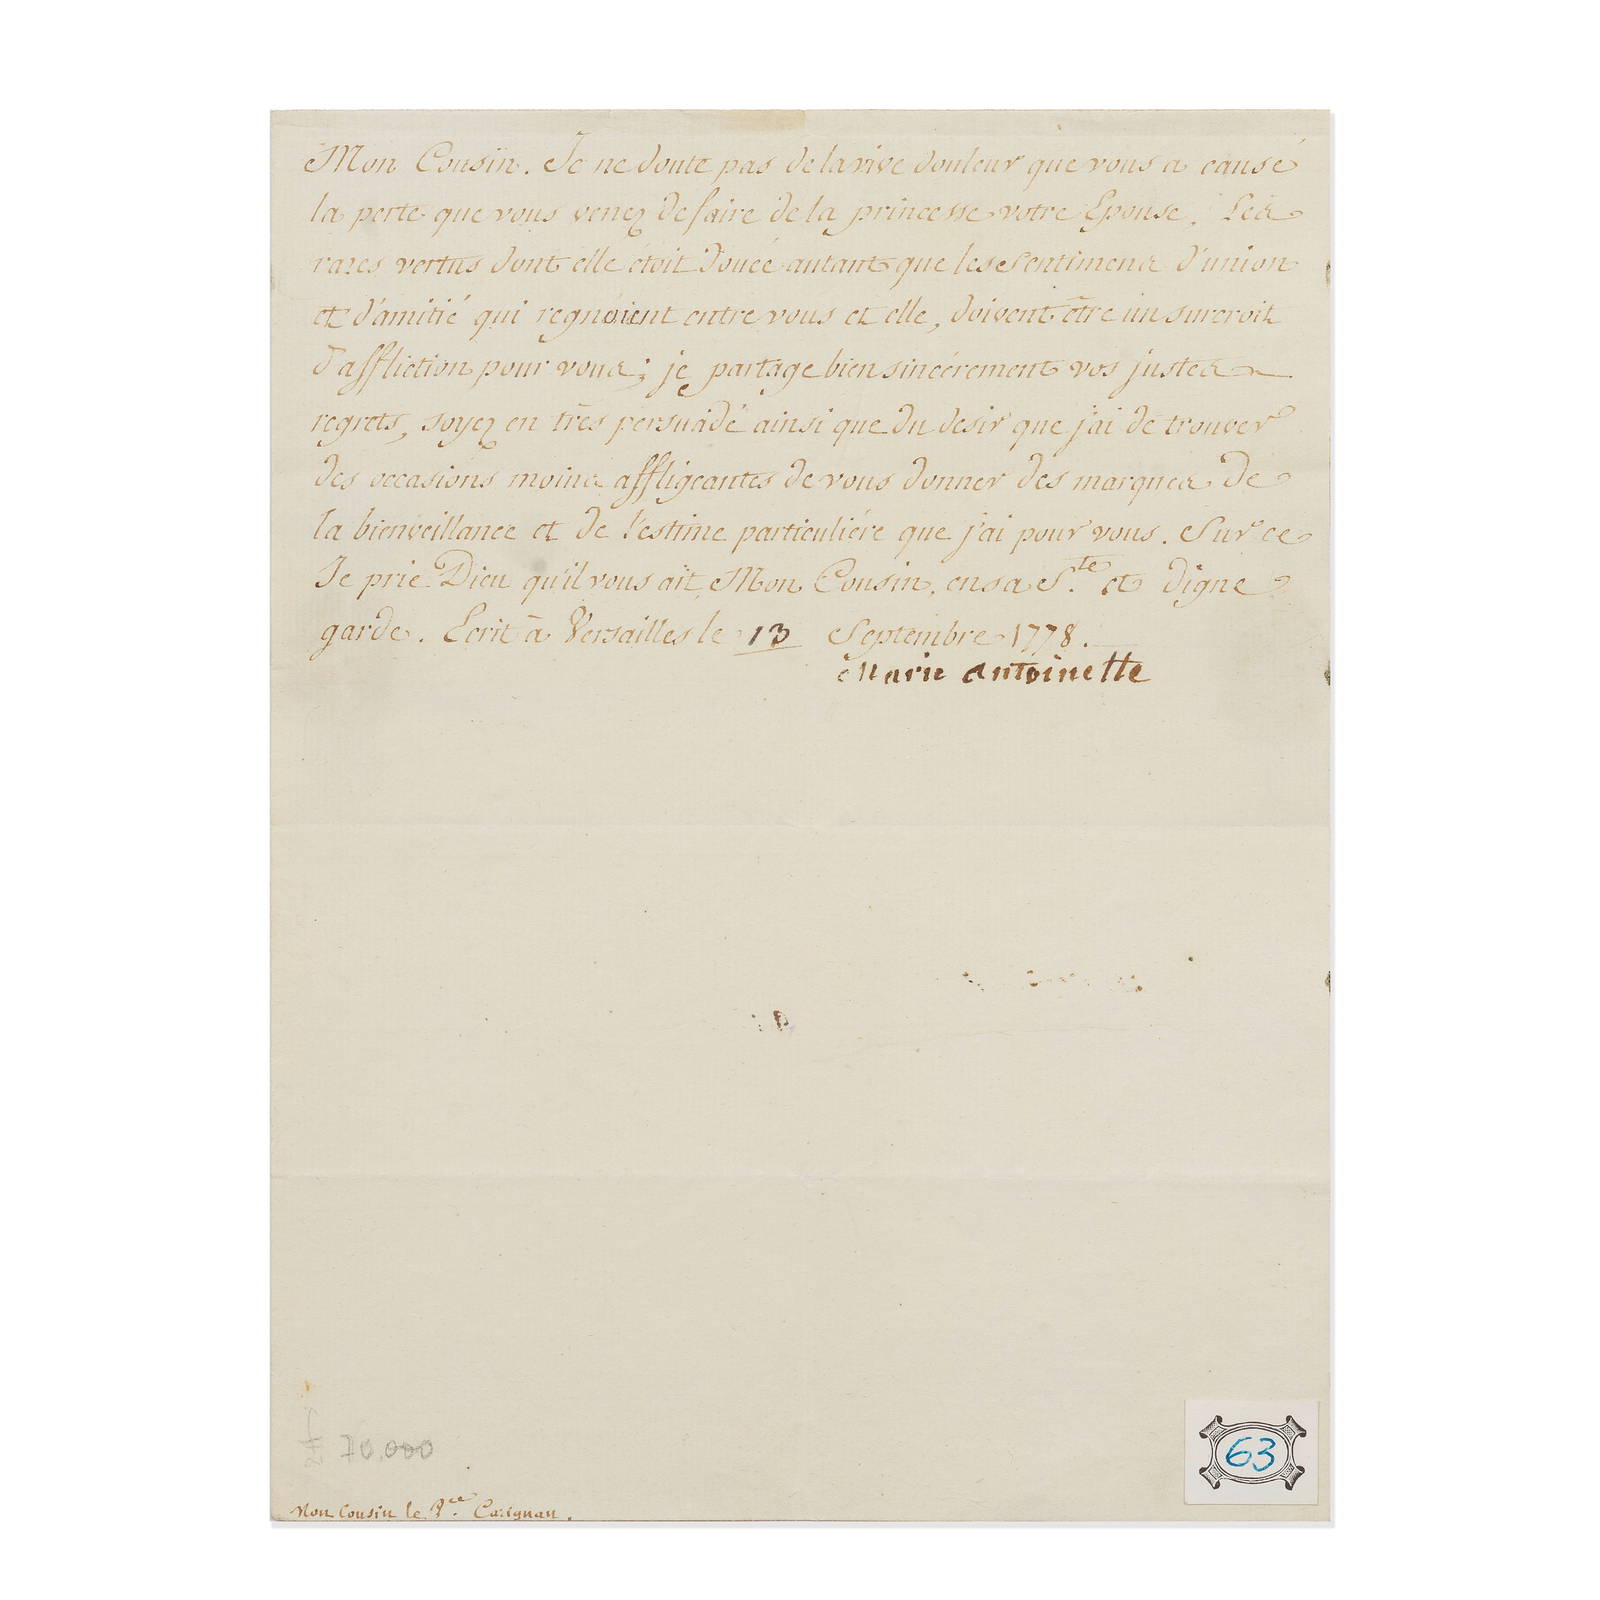 Mon Cousin. Je ne doute pas de la vive douleur que vous a causé
la perte que vous venez de faire de la princesse votre Epouse. Les
rares vertus dont elle étoit douée autant que les sentimens d'union
et d'amitié qui regnoient entre vous et elle, doivent être un surcroit
d'affliction pour vous; je partage bien sincérement vos justes
regrets, soyez en très persuadé ainsi que du desir que j'ai de trouver
des occasions moins affligeantes de vous donner des marques de
la bienveillance et de l'estime particuliére que j'ai pour vous. Sur ce
Je prie Dieu qu'il vous ait, Mon Cousin, en sa S.te et digne
garde. Ecrit à Versailles le 13 Septembre 1778.
Marie Antoinette
70.000
63
Mon Cousin le P.ce Carignan.